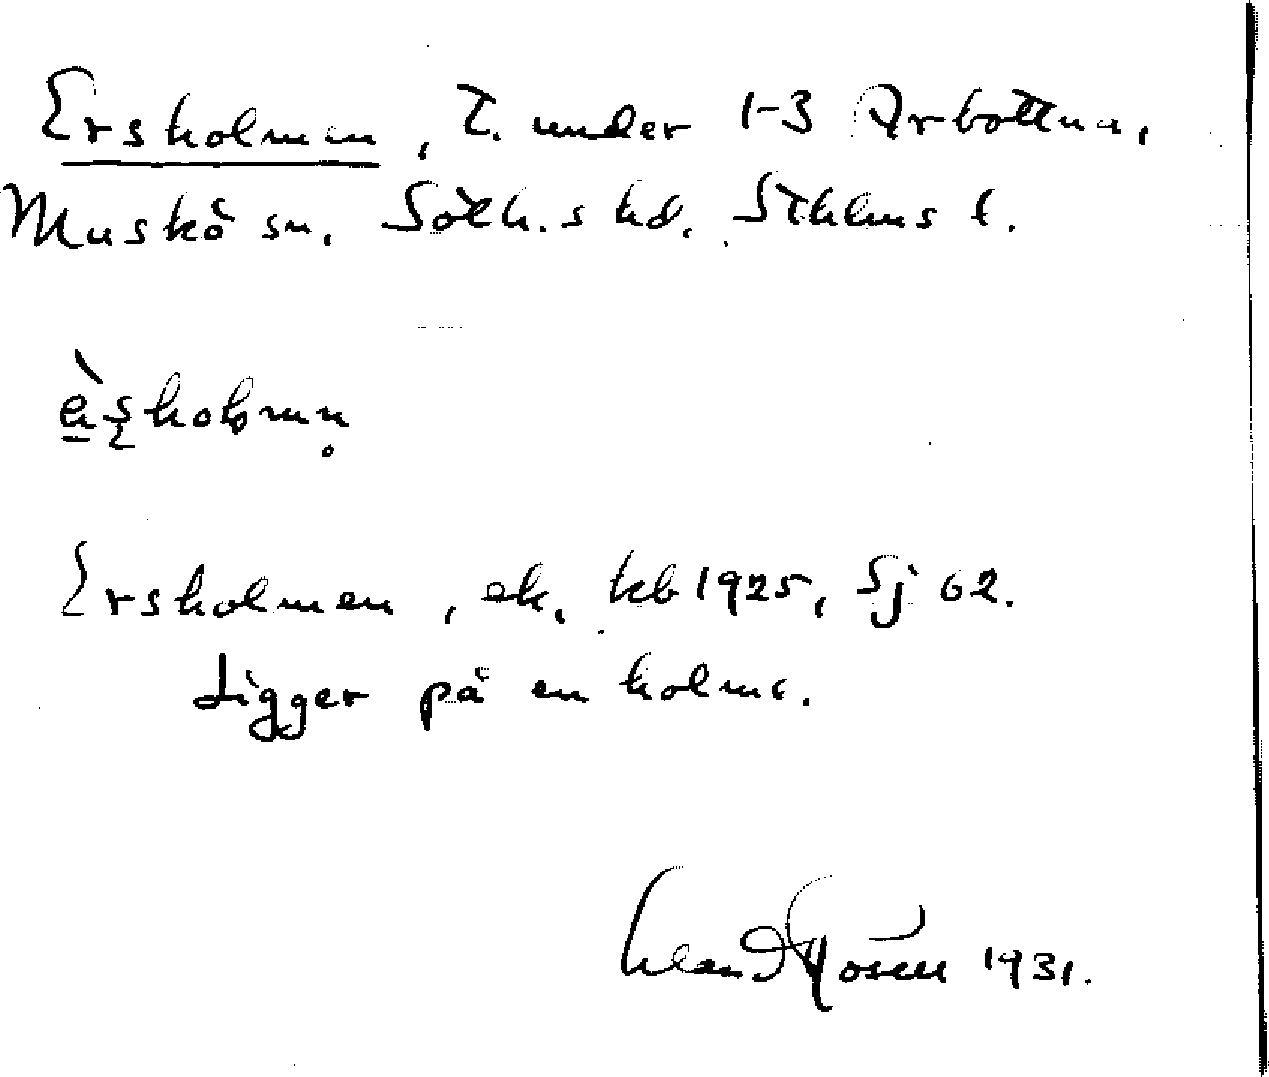 Ersholmen, T. under 1-3 Arbottna,
Muskö sn. Soth.s hd. Sthlms l.
Ersholmen, ek. kb 1925, Sj 62.
Ligger på en holme.
1931.